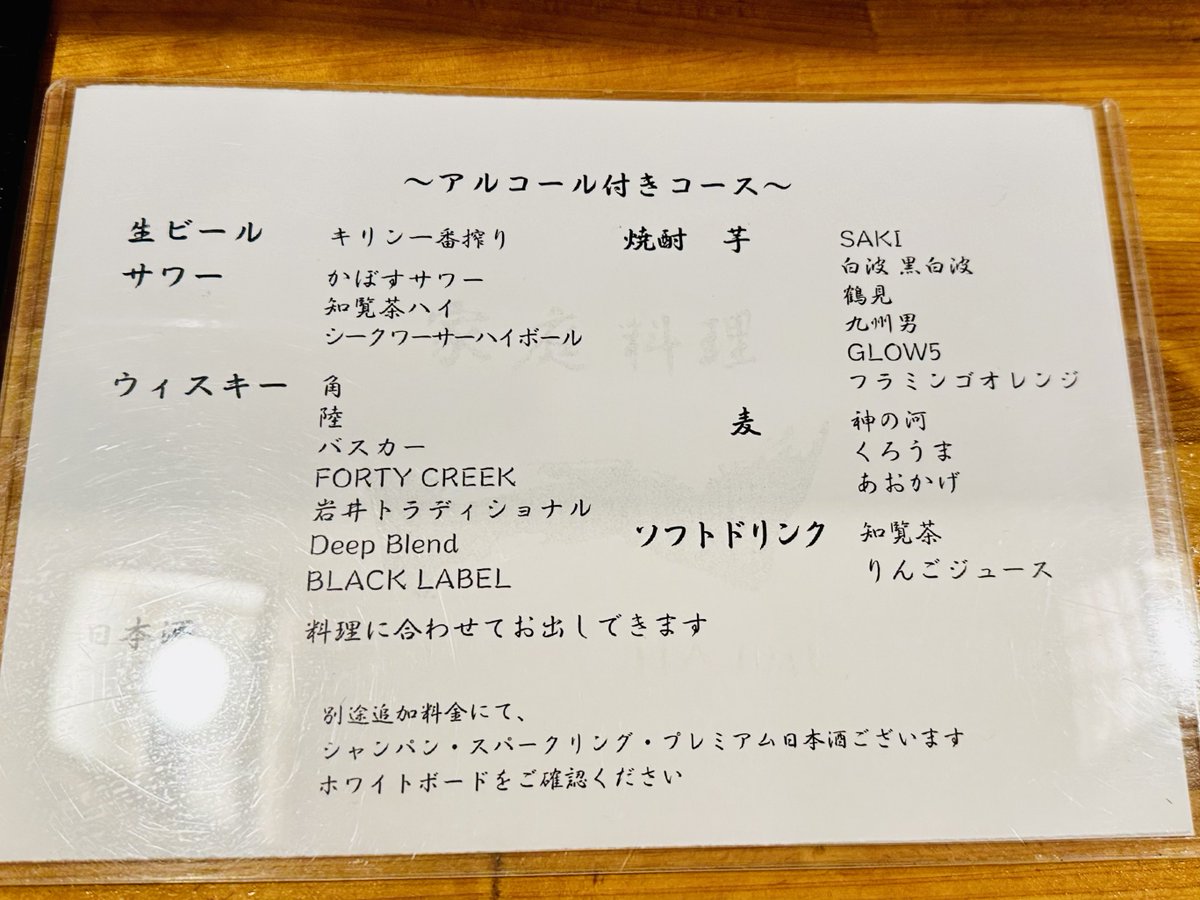 ～アルコール付きコース～
生ビール キリン一番搾り
サワー かぼすサワー
知覧茶ハイ
シークワーサーハイボール
ウィスキー 角
陸
バスカー
FORTY CREEK
岩井トラディショナル
Deep Blend
BLACK LABEL
日本酒 料理に合わせてお出しできます
焼酎 芋 SAKI
白波 黒白波
鶴見
九州男
GLOW5
フラミンゴオレンジ
麦 神の河
くろうま
あおかげ
ソフトドリンク 知覧茶
りんごジュース
別途追加料金にて、
シャンパン・スパークリング・プレミアム日本酒ございます
ホワイトボードをご確認ください